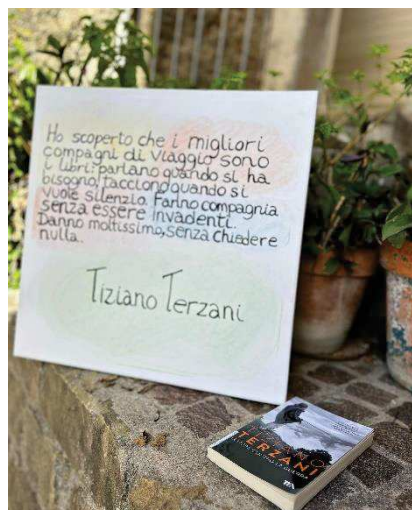 Ho scoperto che i migliori
compagni di viaggio sono
i libri: parlano quando si ha
bisogno, tacciono quando si
vuole silenzio. Fanno compagnia
senza essere invadenti.
Danno moltissimo, senza chiedere
nulla.
Tiziano Terzani
TERZANI